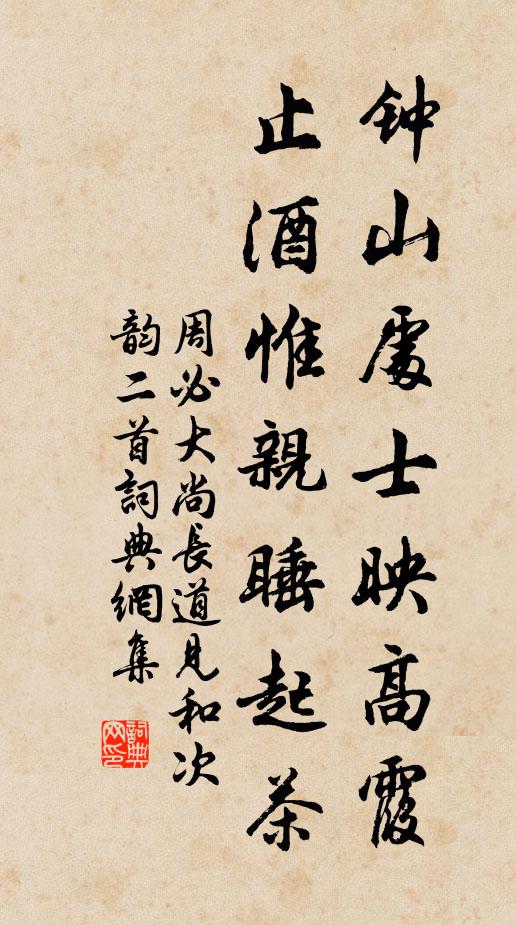 钟山處士映高霞
止酒惟親睡起茶
周必大尚長道見和次
韵二首詞典網集
詞典网印